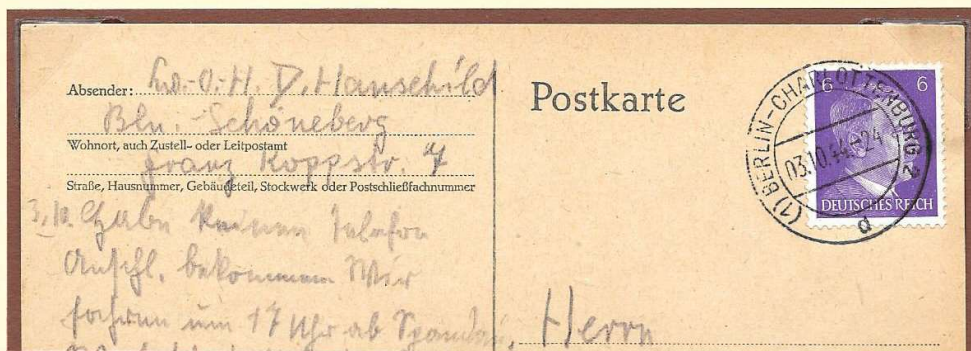 Absender: D. Hanschild
Bln.-Schöneberg
Wohnort, auch Zustell- oder Leitpostamt
Franz Koppstr. 7
Straße, Hausnummer, Gebäudeteil, Stockwerk oder Postschließfachnummer
3.10. Habe keinen Telefon
Anschl. bekommen Wir
fahren um 17 Uhr ab Spandau,
Postkarte
6 6
DEUTSCHES REICH
(1) BERLIN-CHARLOTTENBURG 2
03.10.44-24
d
Herrn